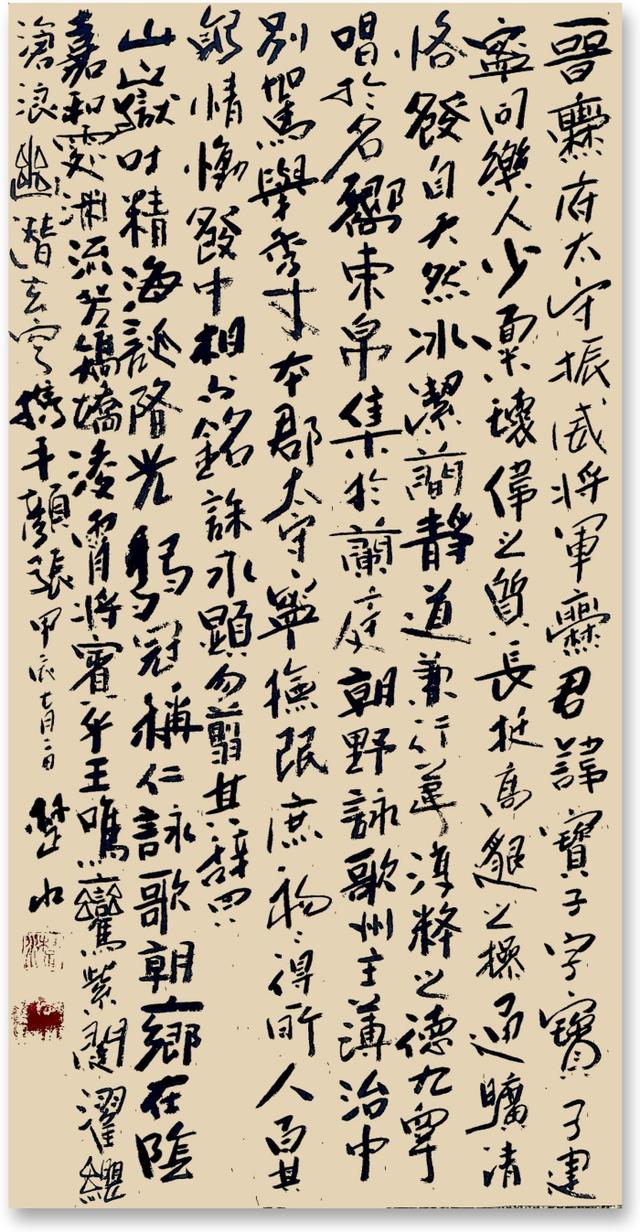 晉爨府太守振威將軍爨君諱寶子字寶子建
寧同樂人少稟瓌偉之質長挺高邈之操通曠清
恪發自天然冰潔簡靜道兼行葦淳粹之德九皋
唱於名響束帛集於蘭庭朝野詠歌州主薄治中
別駕舉秀才本郡太守寧撫氓庶物物得所人百其
躬情慟發中相与銘誄永顯勿翦其辞曰
山嶽吐精海誕陼光弱冠稱仁詠歌朝鄉在陰
嘉和處渊流芳矯凌霄將賓乎王鳴鸞紫闥濯纓
滄浪幽潛玄穹攜手顏張甲辰七月二日水